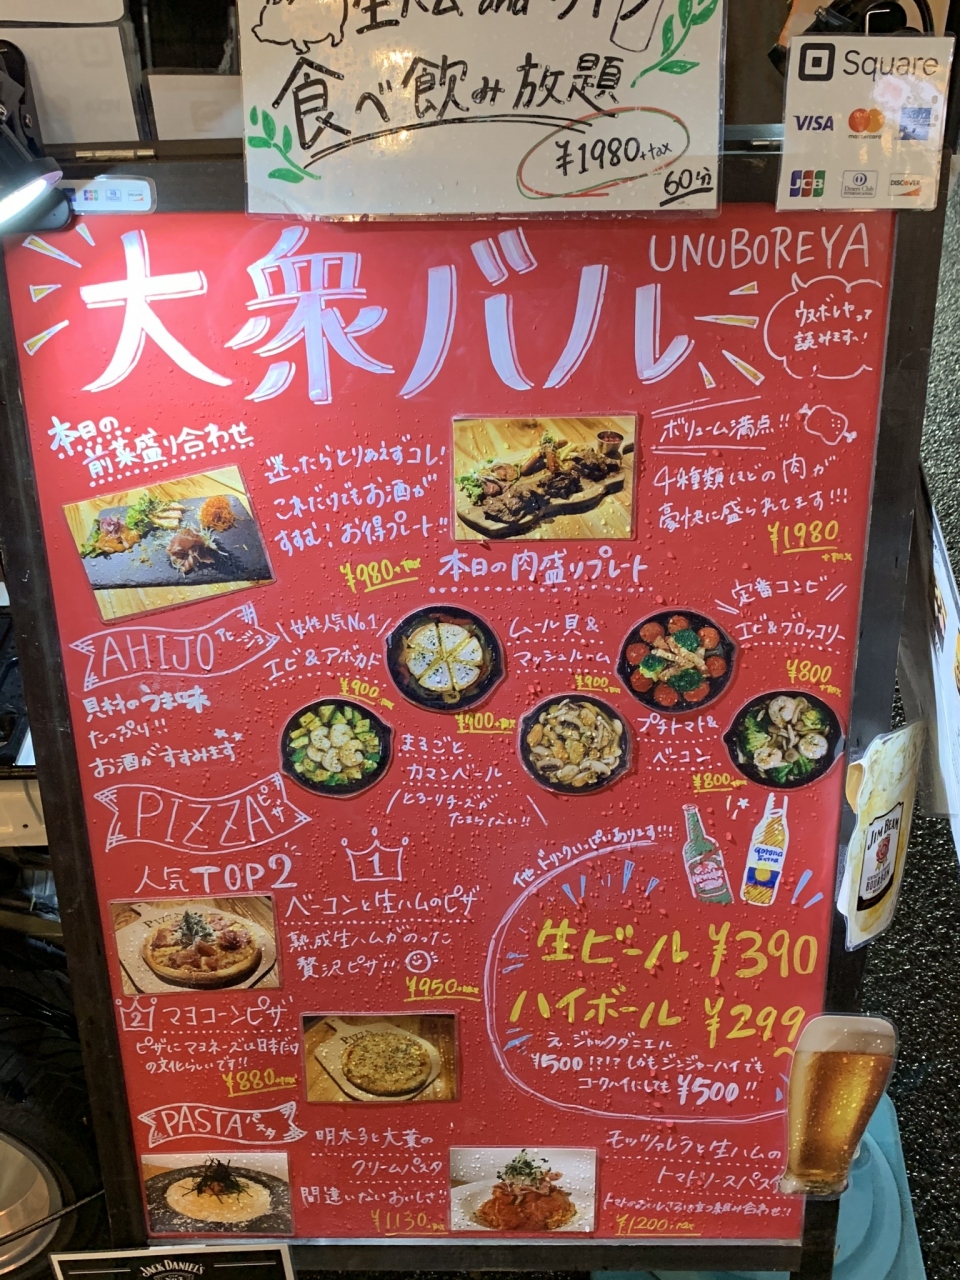 生ハム and ワイン
食べ飲み放題
¥1980+tax
60分
Square
VISA
mastercard
JCB
Diners Club
DISCOVER
大衆バル
UNUBOREYA
ウヌボレヤって
読みます！
本日の
前菜盛り合わせ
迷ったらとりあえずコレ！
これだけでもお酒が
すすむ！お得プレート!!
¥980+tax
ボリューム満点!!
4種類ほどの肉が
豪快に盛られてます!!!
¥1980
+tax
本日の肉盛りプレート
AHIJO
アヒージョ
具材のうま味
たっぷり!!
お酒がすすみます
女性人気No.1
エビ&アボカド
¥900
まるごと
カマンベール
とろーりチーズが
たまらない!!
¥900+tax
ムール貝&
マッシュルーム
¥900+tax
プチトマト&
ベーコン
¥800+tax
定番コンビ
エビ&ブロッコリー
¥800
+tax
PIZZA
ピザ
人気TOP2
1
ベーコンと生ハムのピザ
熟成生ハムがのった
贅沢ピザ!!
¥950+tax
2
マヨコーンピザ
ピザにマヨネーズは日本だけ
の文化らしいです!!
¥880+tax
他、ドリンクいっぱいあります!!!
生ビール ¥390
ハイボール ¥299
え、ジャックダニエル
¥500!?!? しかもジンジャーハイでも
コークハイにしても ¥500!!
JIM BEAM
BOURBON
PASTA
パスタ
明太子と大葉の
クリームパスタ
間違いないおいしさ!!
¥1130+tax
モッツァレラと生ハムの
トマトソースパスタ
¥1200+tax
JACK DANIEL'S